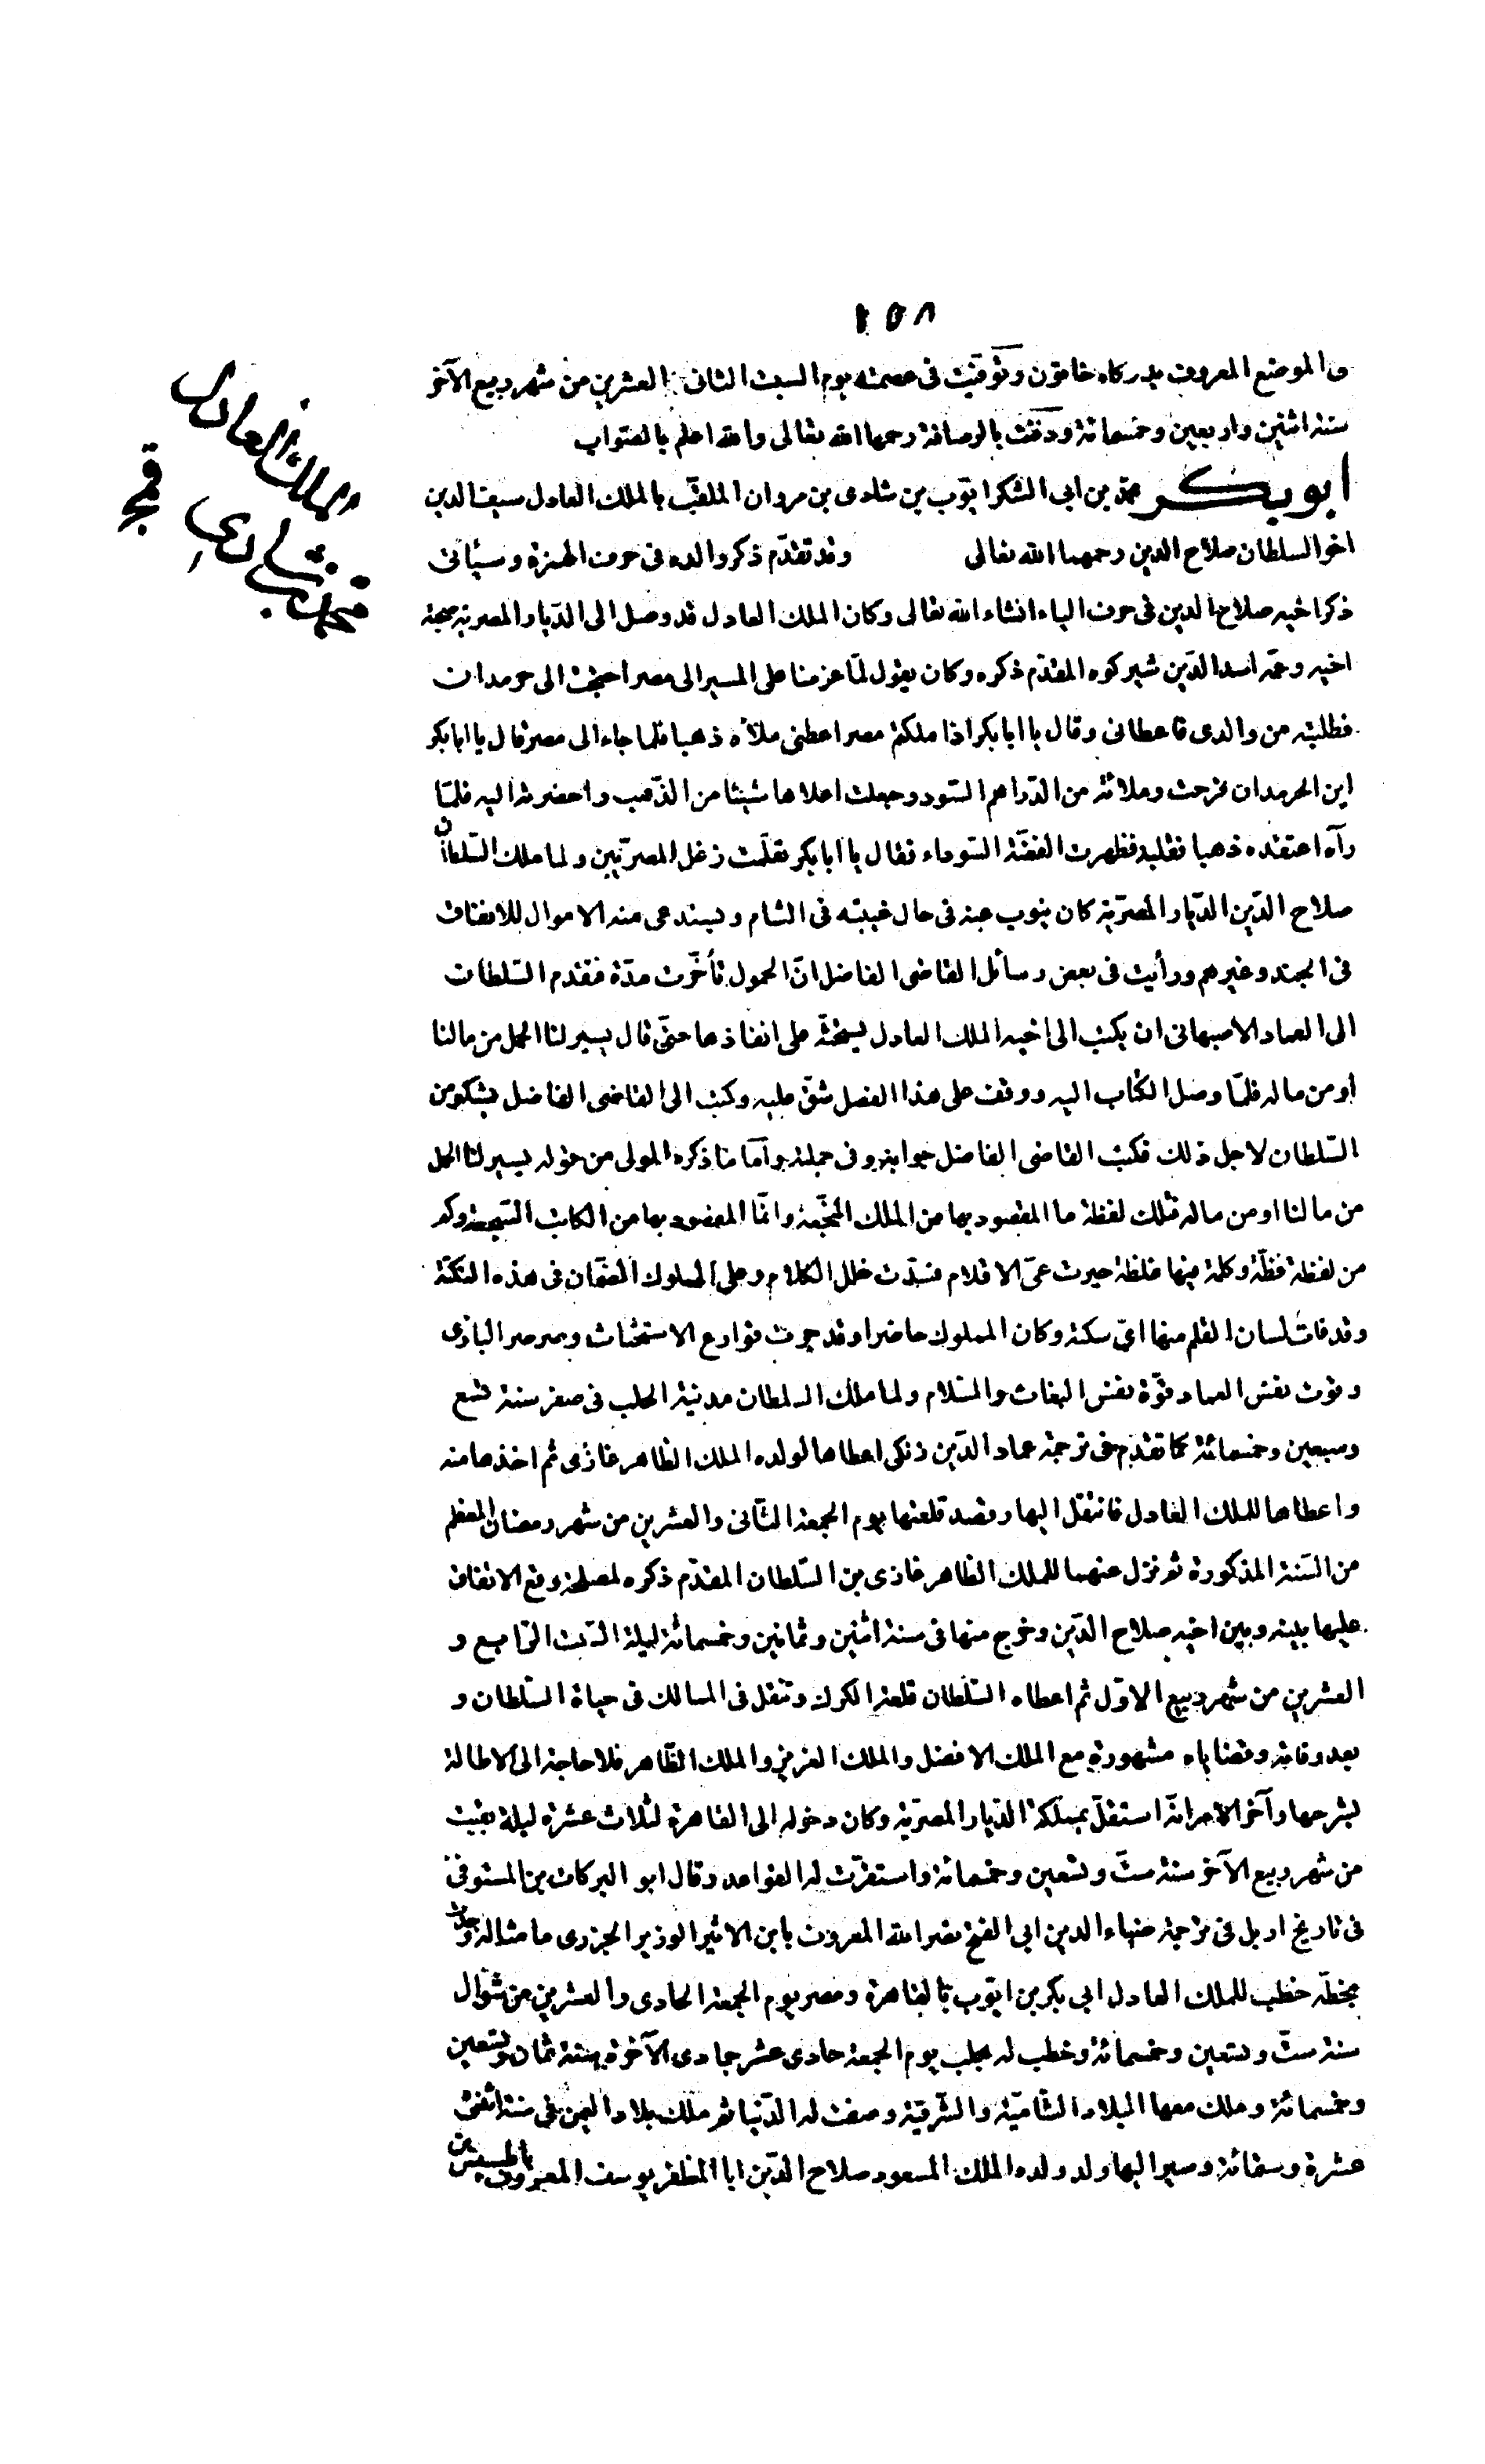 ١٥٨
والموضع المعروف بدركاه خاتون وتوفيت فى عصمته يوم السبت الثانى العشرين من شهر ربيع الآخر
سنة اثنين واربعين وخمسمائة ودفنت بالرصافة رحمها الله تعالى والله اعلم بالصواب
ابو بكر محمد بن ابى الشكر ايّوب بن شادى بن مروان الملقّب بالملك العادل سيف الدين
اخو السلطان صلاح الدين رحمهما الله تعالى وقد تقدّم ذكر والده فى حرف الهمزة وسيأتى
ذكر اخيه صلاح الدين فى حرف الياء انشاء الله تعالى وكان الملك العادل قد وصل الى الديار المصرية صحبة
اخيه وعمّه اسد الدّين شيركوه المقدّم ذكره وكان يقول لمّا عزمنا على المسير الى مصر احتجت الى حرمدان
فطلبته من والدى فاعطانى وقال يا ابا بكر اذا ملكتم مصر اعطنى ملأه ذهبا فلما جاء الى مصر قال يا ابا بكر
اين الحرمدان فرحت وملأته من الدّراهم السّود وجعلت اعلاها شيئا من الذّهب واحضرته اليه فلمّا
رآه اعتقده ذهبا فقلبه فظهرت الفضّة السّوداء فقال يا ابا بكر تعلّمت زغل المصريّين ولما ملك السّلطان
صلاح الدّين الديار المصريّة كان ينوب عنه فى حال غيبته فى الشام ويستدعى منه الاموال للانفاق
فى الجند وغيرهم ورأيت فى بعض رسائل القاضى الفاضل انّ الحمول تأخّرت مدّة فتقدم السّلطان
الى العماد الاصبهانى ان يكتب الى اخيه الملك العادل يستحثّه على انفاذها حتى قال يسير لنا الحمل من مالنا
او من ماله فلمّا وصل الكتاب اليه ووقف على هذا الفصل شقّ عليه وكتب الى القاضى الفاضل يشكو من
السّلطان لاجل ذلك فكتب القاضى الفاضل جوابه وفى جملته وامّا ما ذكره المولى من قوله يسير لنا الحمل
من مالنا او من ماله فتلك لفظة ما المقصود بها من الملك النجعة وانّما المقصود بها من الكاتب السّجعة وكم
من لفظة فظّة وكلمة فيها غلظة حيرت عىّ الاقلام فسدّت خلل الكلام وعلى المملوك الضّمان فى هذه النكتة
وقد فات لسان القلم منها اىّ سكتة وكان المملوك حاضرا وقد جرت قوارع الاستحثاث وصرصر البازى
وقوت نفس العماد قوّة نفس البغاث والسّلام ولما ملك السلطان مدينة الحلب فى صفر سنة تسع
وسبعين وخمسمائة كما تقدم فى ترجمة عماد الدّين زنكى اعطاها لولده الملك الظاهر غازى ثم اخذها منه
واعطاها للملك العادل فانتقل اليها وقصد قلعتها يوم الجمعة الثّانى والعشرين من شهر رمضان المعظم
من السّنة المذكورة ثم نزل عنهما للملك الظاهر غازى بن السّلطان المقدّم ذكره لمصلحة وقع الاتفاق
عليها بينه وبين اخيه صلاح الدّين وخرج منها فى سنة اثنين وثمانين وخمسمائة ليلة السّبت الرّابع و
العشرين من شهر ربيع الاوّل ثم اعطاه السّلطان قلعة الكرك وتنقل فى المسالك فى حياة السّلطان و
بعد وفاته وقضاياه مشهورة مع الملك الافضل والملك العزيز والملك الظّاهر فلا حاجة الى الاطالة
بشرحها وآخر الامر انّه استقلّ بمملكة الديار المصريّة وكان دخوله الى القاهرة لثلاث عشرة ليلة بقيت
من شهر ربيع الآخر سنة ستّ وتسعين وخمسمائة واستقرّت له القواعد وقال ابو البركات بن المستوفى
فى تاريخ اربل فى ترجمة ضياء الدين ابى الفتح نصر الله المعروف بابن الاثير الوزير الجزرى ما مثاله وجدت
بخطّه خطب للملك العادل ابى بكر بن ايّوب بالقاهرة ومصر يوم الجمعة الحادى والعشرين من شوّال
سنة ستّ وتسعين وخمسمائة وخطب له بحلب يوم الجمعة حادى عشر جمادى الآخرة سنة ثمان وتسعين
وخمسمائة وملك معها البلاد الشّاميّة والشّرقيّة وصفت له الدّنيا ثم ملك بلاد اليمن فى سنة اثنتى
عشرة وستمائة وسير اليها ولد ولده الملك المسعود صلاح الدّين ابا المظفر يوسف المعروف
الملك العادل